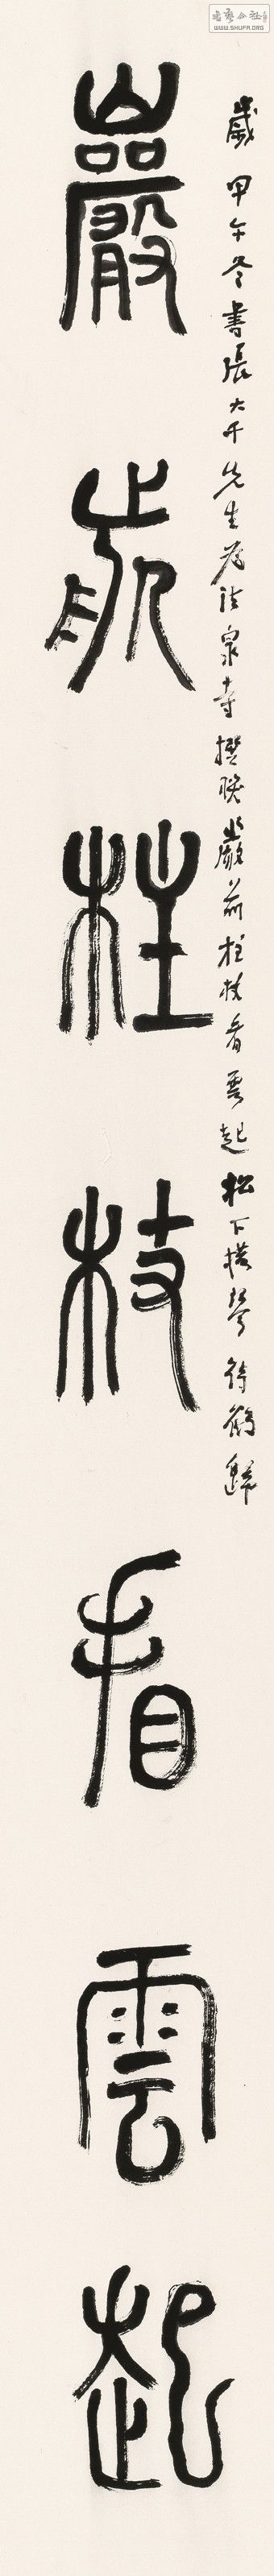 歲甲午冬書張大千先生為法泉寺撰聯巖前柱杖看雲起松下橫琴待鶴歸
巖前柱杖看雲起
WWW.SHUFA.ORG